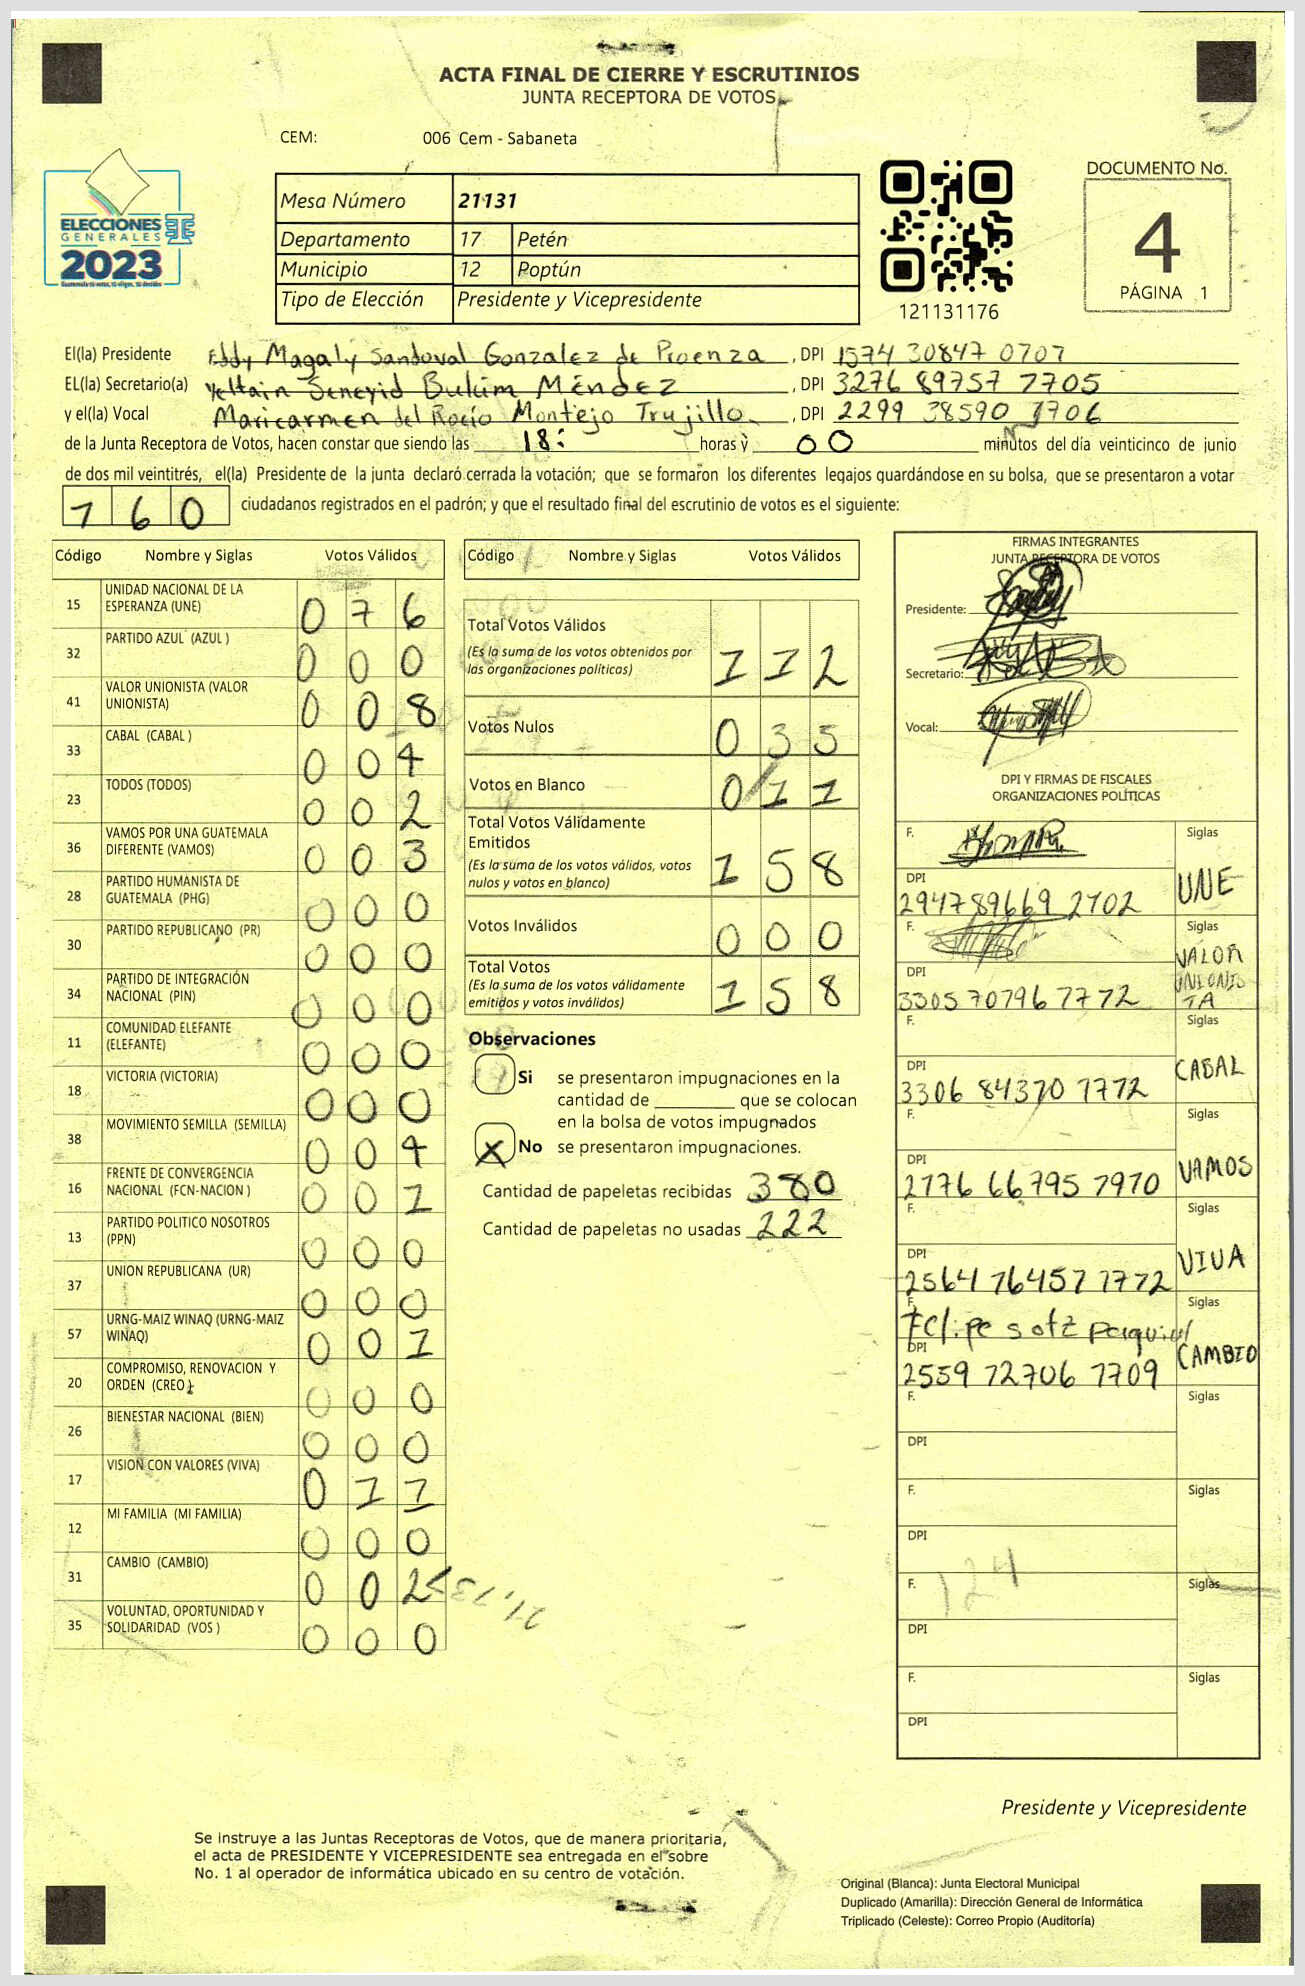 ACTA FINAL DE CIERRE Y ESCRUTINIOS
JUNTA RECEPTORA DE VOTOS
CEM: 006 Cem - Sabaneta
DOCUMENTO No.
4
PÁGINA 1
ELECCIONES
GENERALES
2023
Mesa Número 21131
Departamento 17 Petén
Municipio 12 Poptún
Tipo de Elección Presidente y Vicepresidente
121131176
El(la) Presidente Eddy Magaly Sandoval Gonzalez de Proenza, DPI 1574 30847 0707
EL(la) Secretario(a) Bulúm Méndez, DPI 3276 89757 7705
y el(la) Vocal Maricarmen del Rocío Montejo Trujillo, DPI 2299 38590 1706
de la Junta Receptora de Votos, hacen constar que siendo las 18: horas y 00 minutos del día veinticinco de junio
de dos mil veintitrés, el(la) Presidente de la junta declaró cerrada la votación; que se formaron los diferentes legajos guardándose en su bolsa, que se presentaron a votar
160 ciudadanos registrados en el padrón; y que el resultado final del escrutinio de votos es el siguiente:
Código Nombre y Siglas Votos Válidos
15 UNIDAD NACIONAL DE LA ESPERANZA (UNE) 0 7 6
32 PARTIDO AZUL (AZUL ) 0 0 0
41 VALOR UNIONISTA (VALOR UNIONISTA) 0 0 8
33 CABAL (CABAL ) 0 0 4
23 TODOS (TODOS) 0 0 2
36 VAMOS POR UNA GUATEMALA DIFERENTE (VAMOS) 0 0 3
28 PARTIDO HUMANISTA DE GUATEMALA (PHG) 0 0 0
30 PARTIDO REPUBLICANO (PR) 0 0 0
34 PARTIDO DE INTEGRACIÓN NACIONAL (PIN) 0 0 0
11 COMUNIDAD ELEFANTE (ELEFANTE) 0 0 0
18 VICTORIA (VICTORIA) 0 0 0
38 MOVIMIENTO SEMILLA (SEMILLA) 0 0 4
16 FRENTE DE CONVERGENCIA NACIONAL (FCN-NACION ) 0 0 1
13 PARTIDO POLITICO NOSOTROS (PPN) 0 0 0
37 UNION REPUBLICANA (UR) 0 0 0
57 URNG-MAIZ WINAQ (URNG-MAIZ WINAQ) 0 0 1
20 COMPROMISO, RENOVACION Y ORDEN (CREO ) 0 0 0
26 BIENESTAR NACIONAL (BIEN) 0 0 0
17 VISION CON VALORES (VIVA) 0 1 1
12 MI FAMILIA (MI FAMILIA) 0 0 0
31 CAMBIO (CAMBIO) 0 0 2
35 VOLUNTAD, OPORTUNIDAD Y SOLIDARIDAD (VOS ) 0 0 0
Código Nombre y Siglas Votos Válidos
Total Votos Válidos 1 1 2
(Es la suma de los votos obtenidos por
las organizaciones políticas)
Votos Nulos 0 3 5
Votos en Blanco 0 1 1
Total Votos Válidamente
Emitidos 1 5 8
(Es la suma de los votos válidos, votos
nulos y votos en blanco)
Votos Inválidos 0 0 0
Total Votos 1 5 8
(Es la suma de los votos válidamente
emitidos y votos inválidos)
Observaciones
Si se presentaron impugnaciones en la
cantidad de ________ que se colocan
en la bolsa de votos impugnados
X No se presentaron impugnaciones.
Cantidad de papeletas recibidas 380
Cantidad de papeletas no usadas 222
FIRMAS INTEGRANTES
JUNTA RECEPTORA DE VOTOS
Presidente:
Secretario:
Vocal:
DPI Y FIRMAS DE FISCALES
ORGANIZACIONES POLÍTICAS
F. Siglas
DPI UNE
2947 89669 2702
F. Siglas
DPI VALOR UNIONISTA
3305 70796 7772
F. Siglas
DPI CABAL
3306 84370 1772
F. Siglas
DPI VAMOS
2776 66795 7970
F. Siglas
DPI VIVA
2564 76457 7772
F. Siglas
Felipe sotz
DPI CAMBIO
2559 72706 1709
F. Siglas
DPI
F. Siglas
DPI
F. 124 Siglas
DPI
F. Siglas
DPI
Presidente y Vicepresidente
Se instruye a las Juntas Receptoras de Votos, que de manera prioritaria,
el acta de PRESIDENTE Y VICEPRESIDENTE sea entregada en el sobre
No. 1 al operador de informática ubicado en su centro de votación.
Original (Blanca): Junta Electoral Municipal
Duplicado (Amarilla): Dirección General de Informática
Triplicado (Celeste): Correo Propio (Auditoría)